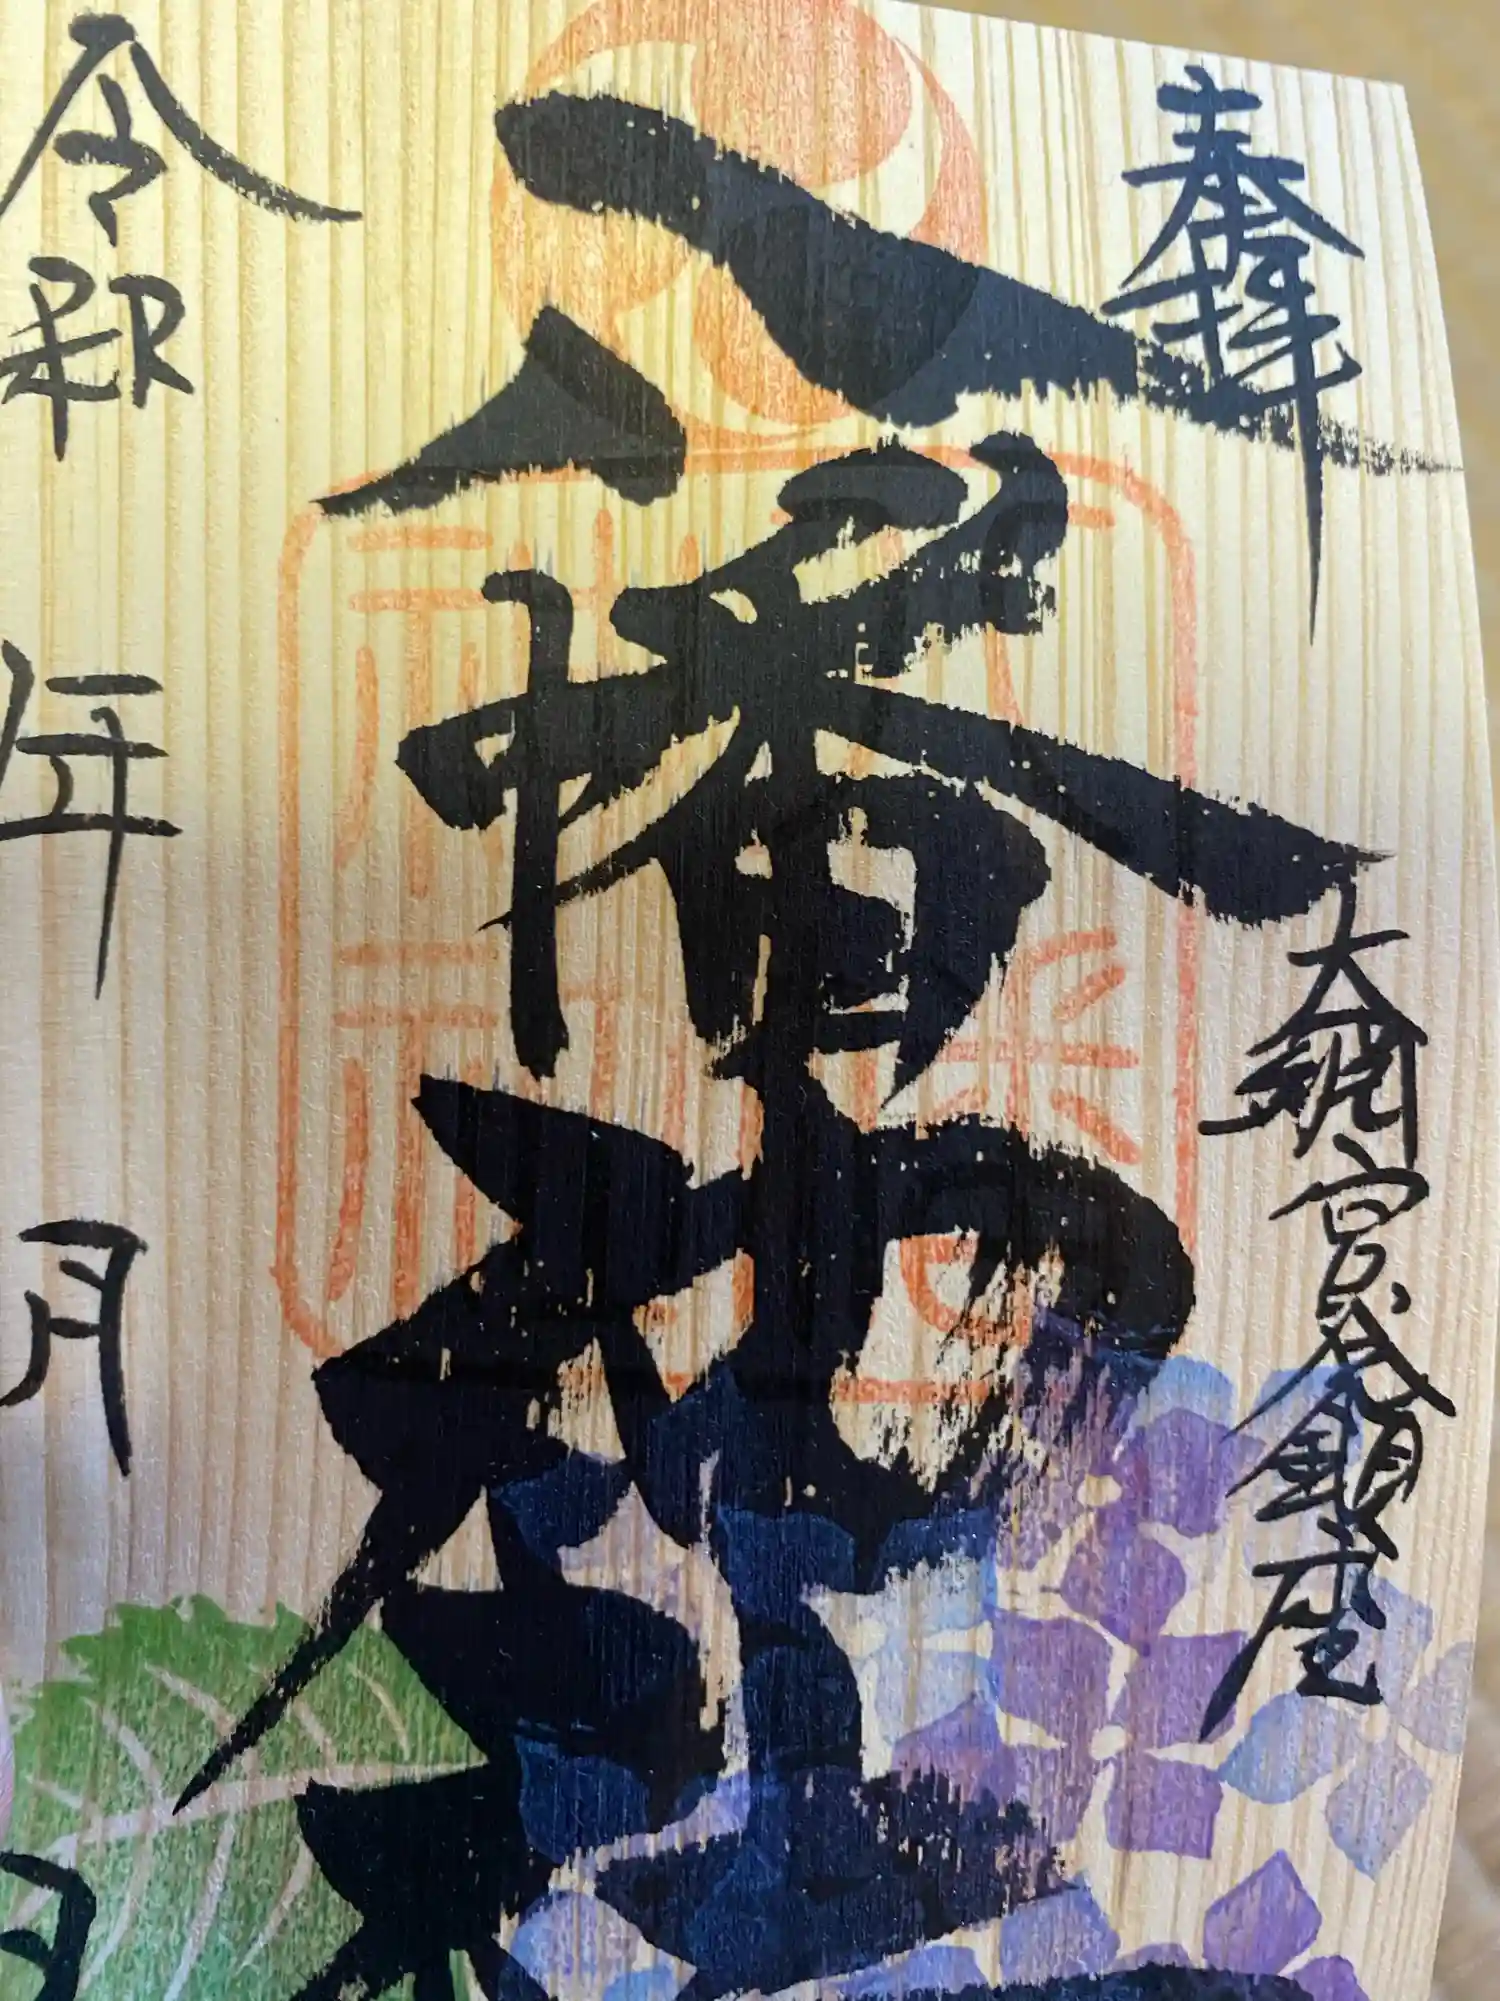 奉拝
大網宮谷鎮座
八幡神社
令和
年
月
日